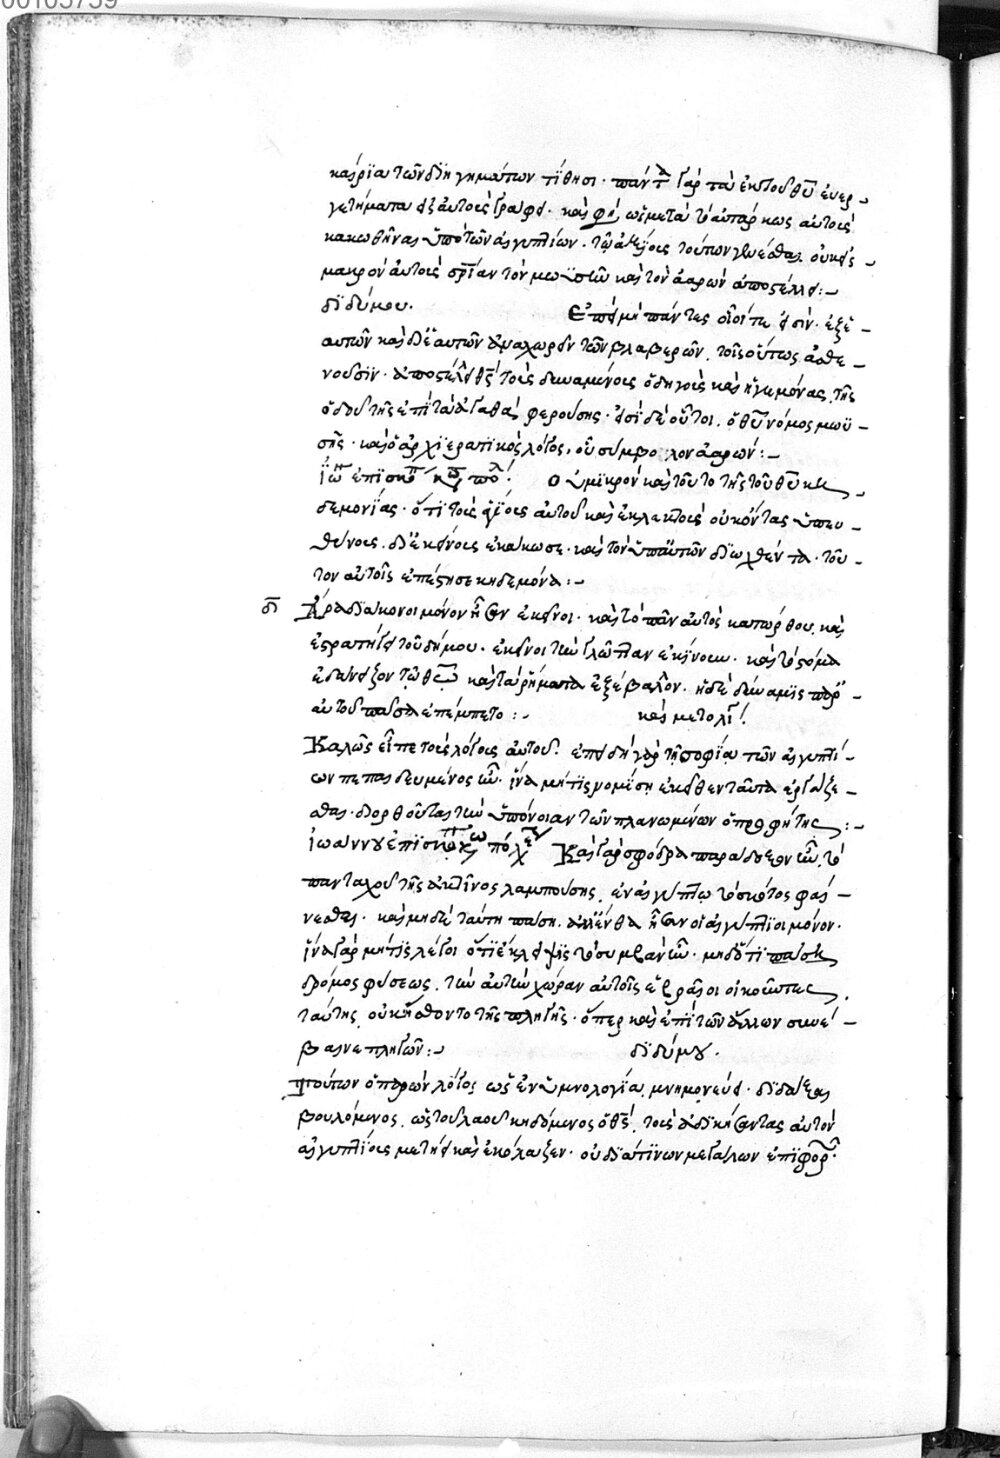 00105759
καίρϊα τῶν δϊηγημάτων τίθησι· πάντα γὰρ τὰ ἐκ τοῦ θῡ εὐερ-
γετήματα αὐτοῖς γράφει· καὶ φησὶ μετὰ τὸ αὐτοῖς
κακωθῆναι ὑπὸ τῶν αἰγυπτίων·
μακρὸν αὐτοῖς τὸν μωϋσῆν καὶ τὸν ἀαρὼν ἀποστέλλει:-
διδύμου. Ἐπεὶ μὴ πάντες οἷοί τε εἰσὶν· ἐξ ἑ-
αυτῶν καὶ δι' ἑαυτῶν ἀναχωρεῖν τῶν βλαβερῶν, τοῖς οὕτως ἀσθε-
νοῦσϊν· ἀποστέλλει θς̄ τοὺς δυναμένους ὁδηγοὺς καὶ ἡγεμόνας τῆς
ὁδοῦ τῆς ἐπὶ τὰ ἀγαθὰ φερούσης· εἰσὶ δὲ οὗτοι, ὁ θῡ νόμος μωϋ-
σῆς· καὶ ὁ ἀρχϊερατϊκὸς λόγος, οὗ σύμβολον ἀαρών:-
Οὐ μϊκρὸν καὶ τοῦτο τῆς τοῦ θῡ κη-
δεμονίας· ὅτι τοὺς ἁγίους αὐτοῦ καὶ ἐκλεκτοὺς οὐκ ὄντας ὑπευ-
θύνους, δι' ἐκείνους ἐκάκωσε· καὶ τὸν ὑπ' αὐτῶν δϊωχθέντα· τοῦ-
τον αὐτοῖς ἐπέστησε κηδεμόνα:-
Ἄρα δϊάκονοι μόνον ἦσαν ἐκεῖνοι· καὶ τὸ πᾶν αὐτὸς κατώρθου, καὶ
ἐστρατήγει τοῦ δήμου· ἐκεῖνοι τὴν γλῶτταν ἐκίνουν· καὶ τὸ στόμα
τῷ θεῷ καὶ τὰ ῥήματα ἐξέβαλλον· ἡ δὲ δύναμϊς παρ'
αὐτοῦ πᾶσα ἐπέμπετο:- καὶ μετ' ὀλί
Καλῶς εἶπε τοὺς λόγους αὐτοῦ· ἐπειδὴ γὰρ τῇ σοφίᾳ τῶν αἰγυπτί-
ων πεπαιδευμένος ἦν· ἵνα μή τϊς νομίσῃ ἐκεῖθεν ταῦτα ἐργάζε-
σθαι· διορθοῦται τὴν ὑπόνοιαν τῶν πλανωμένων ὁ προφήτης:-
ἰωάννου ἐπϊσκόπου Καὶ γὰρ σφόδρα παράδοξον ἦν, τὸ
πανταχοῦ τῆς ἀκτῖνος λαμπούσης, ἐν αἰγύπτῳ τὸ σκότος φαί-
νεσθαι· καὶ μηδὲ ταύτῃ πάσῃ, ἀλλ' ἔνθα ἦσαν οἱ αἰγύπτϊοι μόνον·
ἵνα γὰρ μή τϊς λέγοι ὅτϊ ἔκλειψϊς τὸ συμβὰν ἦν· μηδ' ὅτϊ
δρόμος φύσεως, τὴν αὐτὴν χώραν αὐτοῖς ἑβραῖοι οἰκοῦντες
ταύτης οὐκ ᾔσθοντο τῆς πληγῆς· ὅπερ καὶ ἐπὶ τῶν ἄλλων συνέ-
βαινε πληγῶν:- διδύμου.
Τούτων ὁ παρὼν λόγος ὡς ἐν ὑμνολογίᾳ μνημονεύει· διδάξαι
βουλόμενος, ὡς τοῦ λαοῦ κηδόμενος ὁ θς̄, τοὺς ἀδϊκήσαντας αὐτὸν
αἰγυπτίους μετῄει καὶ ἐκόλαζεν· οὐ δϊά τϊνων μεγάλων